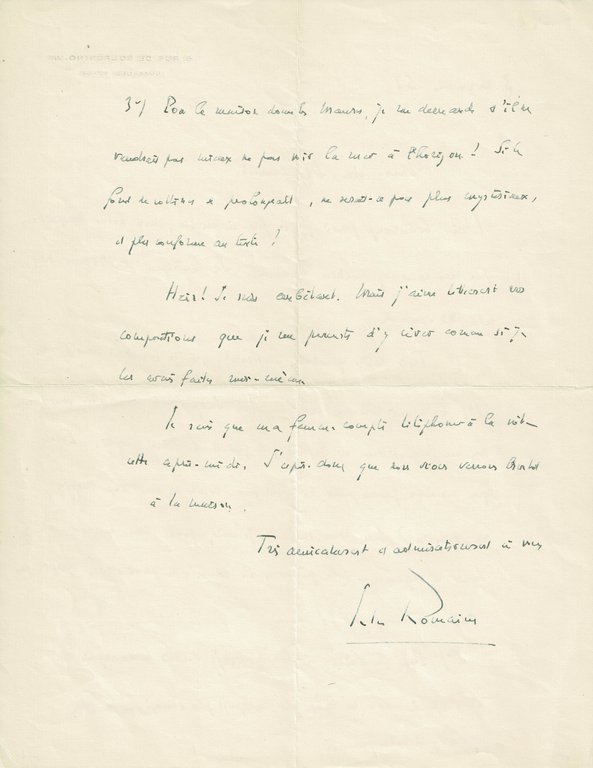 3°) Pour la maison dans les Maures, je me demande s'il ne
vaudrait pas mieux ne pas voir la mer à l'horizon ! Si le
fond de collines se prolongeait, ne serait-ce pas plus mystérieux,
et plus conforme au texte ?
Hein ! Je suis embêtant. Mais j'aime tellement vos
compositions que je me permets d'y rêver comme si je
les avais faites moi-même.
Je sais que ma femme compte téléphoner à la vôtre
cette après-midi. J'espère donc que nous vous verrons bientôt
à la maison.
Très amicalement et admirativement à vous
Jules Romains